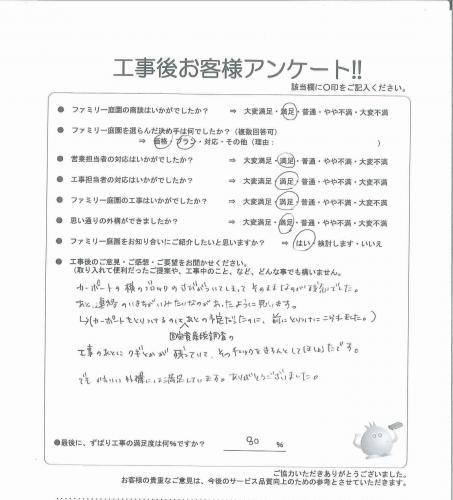 工事後お客様アンケート!!
該当欄に〇印をご記入ください。
● ファミリー庭園の商談はいかがでしたか? ⇒ 大変満足・満足・普通・やや不満・大変不満
● ファミリー庭園を選らんだ決め手は何でしたか?(複数回答可)
⇒ 価格・プラン・対応・その他(理由: )
● 営業担当者の対応はいかがでしたか? ⇒ 大変満足・満足・普通・やや不満・大変不満
● 工事担当者の対応はいかがでしたか? ⇒ 大変満足・満足・普通・やや不満・大変不満
● ファミリー庭園の工事はいかがでしたか? ⇒ 大変満足・満足・普通・やや不満・大変不満
● 思い通りの外構ができましたか? ⇒ 大変満足・満足・普通・やや不満・大変不満
● ファミリー庭園をお知り合いにご紹介したいと思いますか? ⇒ はい・検討します・いいえ
● 工事後のご意見・ご感想・ご要望をお聞かせください。
(取り入れて便利だったご提案や、工事中のこと、など、どんな事でも構いません。
カーポートの横のブロックの
あと、連絡の
(カーポートもとりつけるのはあとの予定だったのに、前にとりつけに
固定資産税調査の
工事のあとにクギとかが残っていて、
でも かわいい外構には満足しています。ありがとうございました。
●最後に、ずばり工事の満足度は何%ですか? 80 %
ご協力いただきありがとうございました。
お客様の貴重なご意見は、今後のサービス品質向上のための参考とさせていただきます。